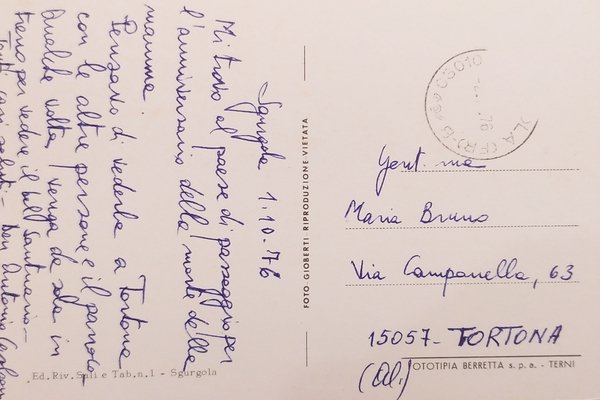 Sgurgola 1.10.76
Mi trovo al paese di passaggio per
l'anniversario della morte della
mamma.
Pensavo di vederla a Tortona
con le altre persone e il parroco.
Qualche volta, venga da sola in
treno per vedere il bel Santuario.
Tanti cari saluti - Don Antonio
.Ed.Riv.Sali e Tab.n.1 - Sgurgola
FOTO-GIOBERTI - RIPRODUZIONE VIETATA
03010
LA (FR)
76
Gent.ma
Maria Bruno
Via Campanella, 63
15057- TORTONA
(Al.)
OTOTIPIA BERRETTA s.p.a. - TERNI